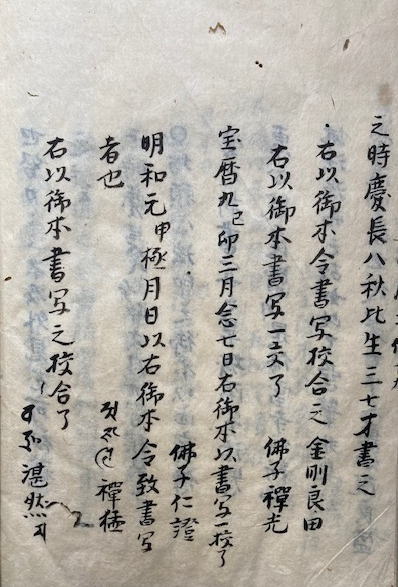 之時慶長八秋比生三七才書之
右以御本令書写校合之 金剛良田
右以御本書写一交了 佛子禪光
宝暦九己卯三月念七日右御本以書写一校了
佛子仁證
明和元甲極月日以右御本令致書写
者也 禪
右以御本書写之校合了
湛然